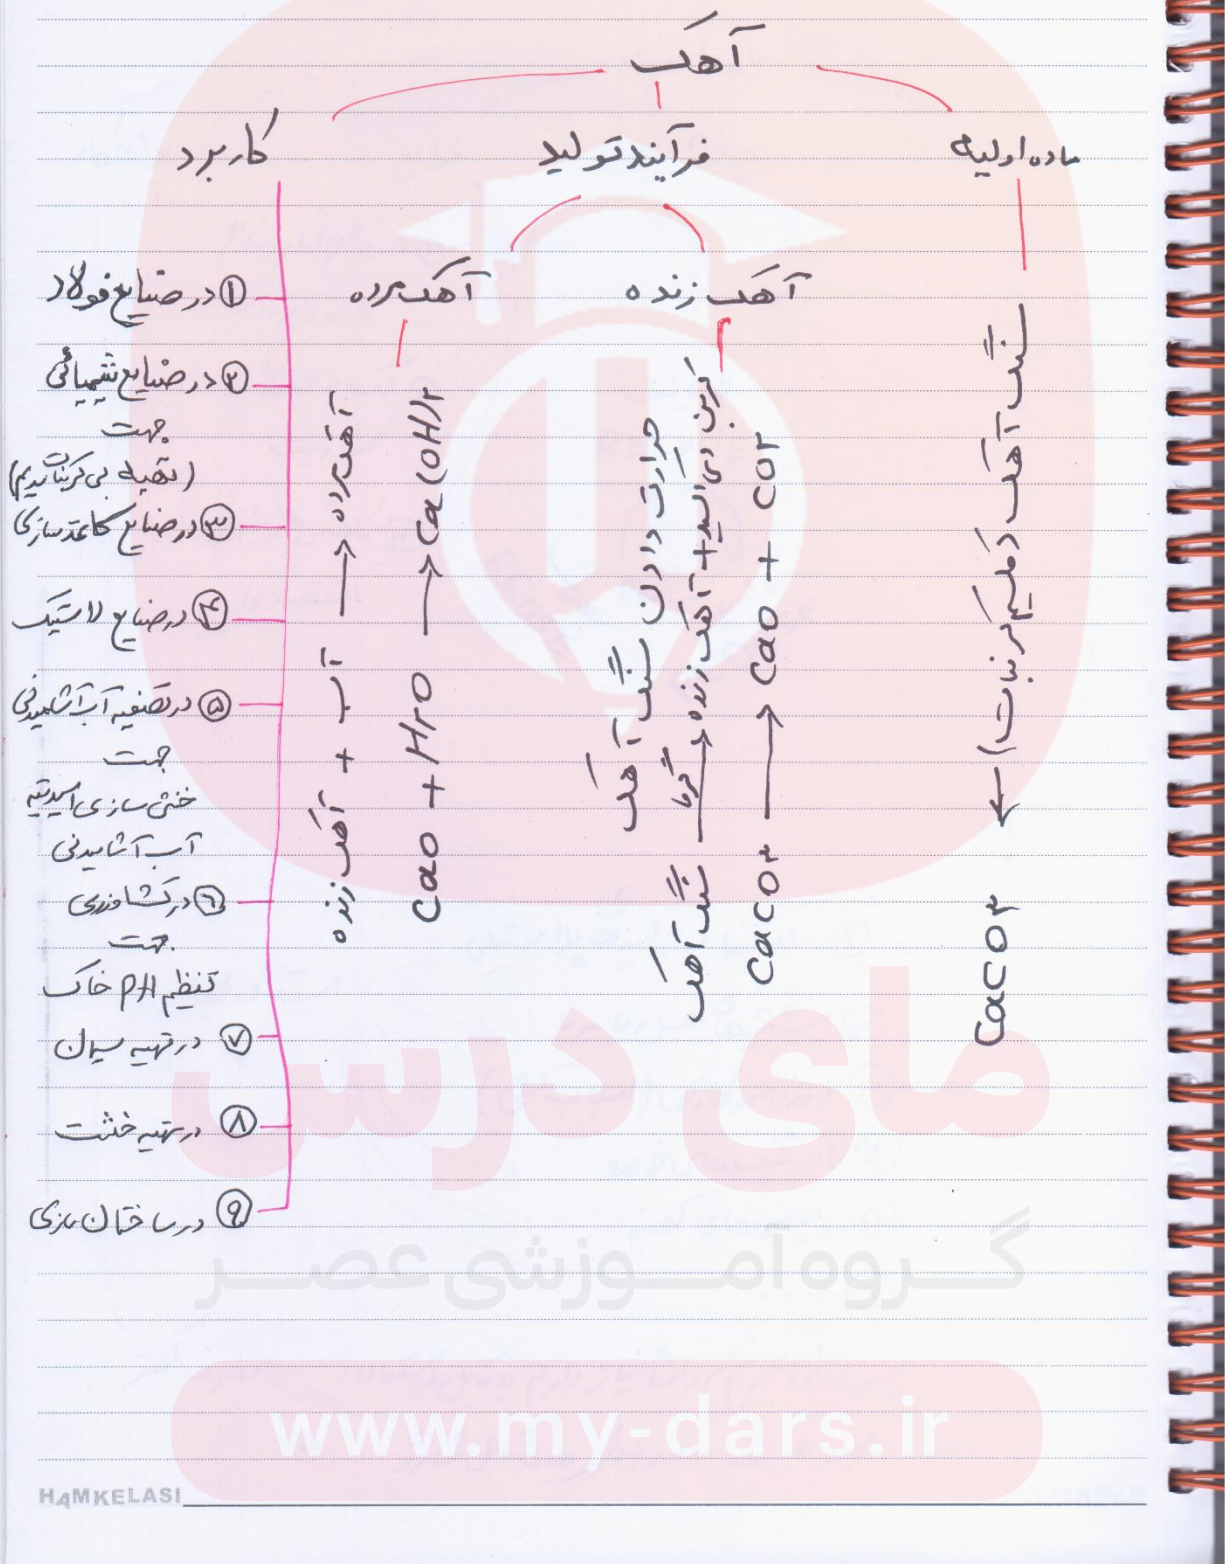 آهک
ماده اولیه
فرآیند تولید
کاربرد
سنگ آهک (کلسیم کربنات) ← CaCO۳
آهک زنده
حرارت دادن سنگ آهک
سنگ آهک —گرما→ آهک زنده + کربن دی اکسید
CaCO۳ → CaO + CO۲
آهک مرده
آهک زنده + آب → آهک مرده
CaO + H۲O → Ca(OH)۲
① در صنایع فولاد
② در صنایع شیمیائی
جهت
(تهیه بی کربنات سدیم)
③ در صنایع کاغذ سازی
④ در صنایع لاستیک
⑤ در تصفیه آب آشامیدنی
جهت
خنثی سازی اسیدیته
آب آشامیدنی
⑥ در کشاورزی
جهت
تنظیم PH خاک
⑦ در تهیه سیمان
⑧ در تهیه خشت
⑨ در ساختمان سازی
مای درس
گروه آموزشی عصر
www.my-dars.ir
HAMKELASI